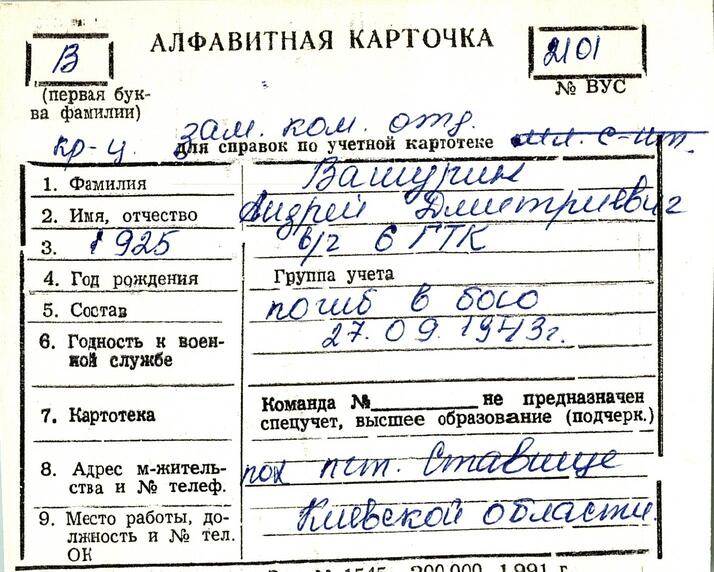 В
АЛФАВИТНАЯ КАРТОЧКА
2101
(первая бук-
ва фамилии)
№ ВУС
зам. ком. отд.
кр-ц. для справок по учетной картотеке мл. с-нт.
1. Фамилия Вашурин
2. Имя, отчество Андрей Дмитриевич
3. 1925 в/ч 6 ГТК
4. Год рождения Группа учета
5. Состав погиб в бою
6. Годность к воен-
ной службе 27.09.1943г.
7. Картотека Команда №________ не предназначен
спецучет, высшее образование (подчерк.)
8. Адрес м-житель-
ства и № телеф. пох пгт. Ставище
9. Место работы, до- Киевской области.
лжность и № тел.
ОК
1545 200.000 1991 г.